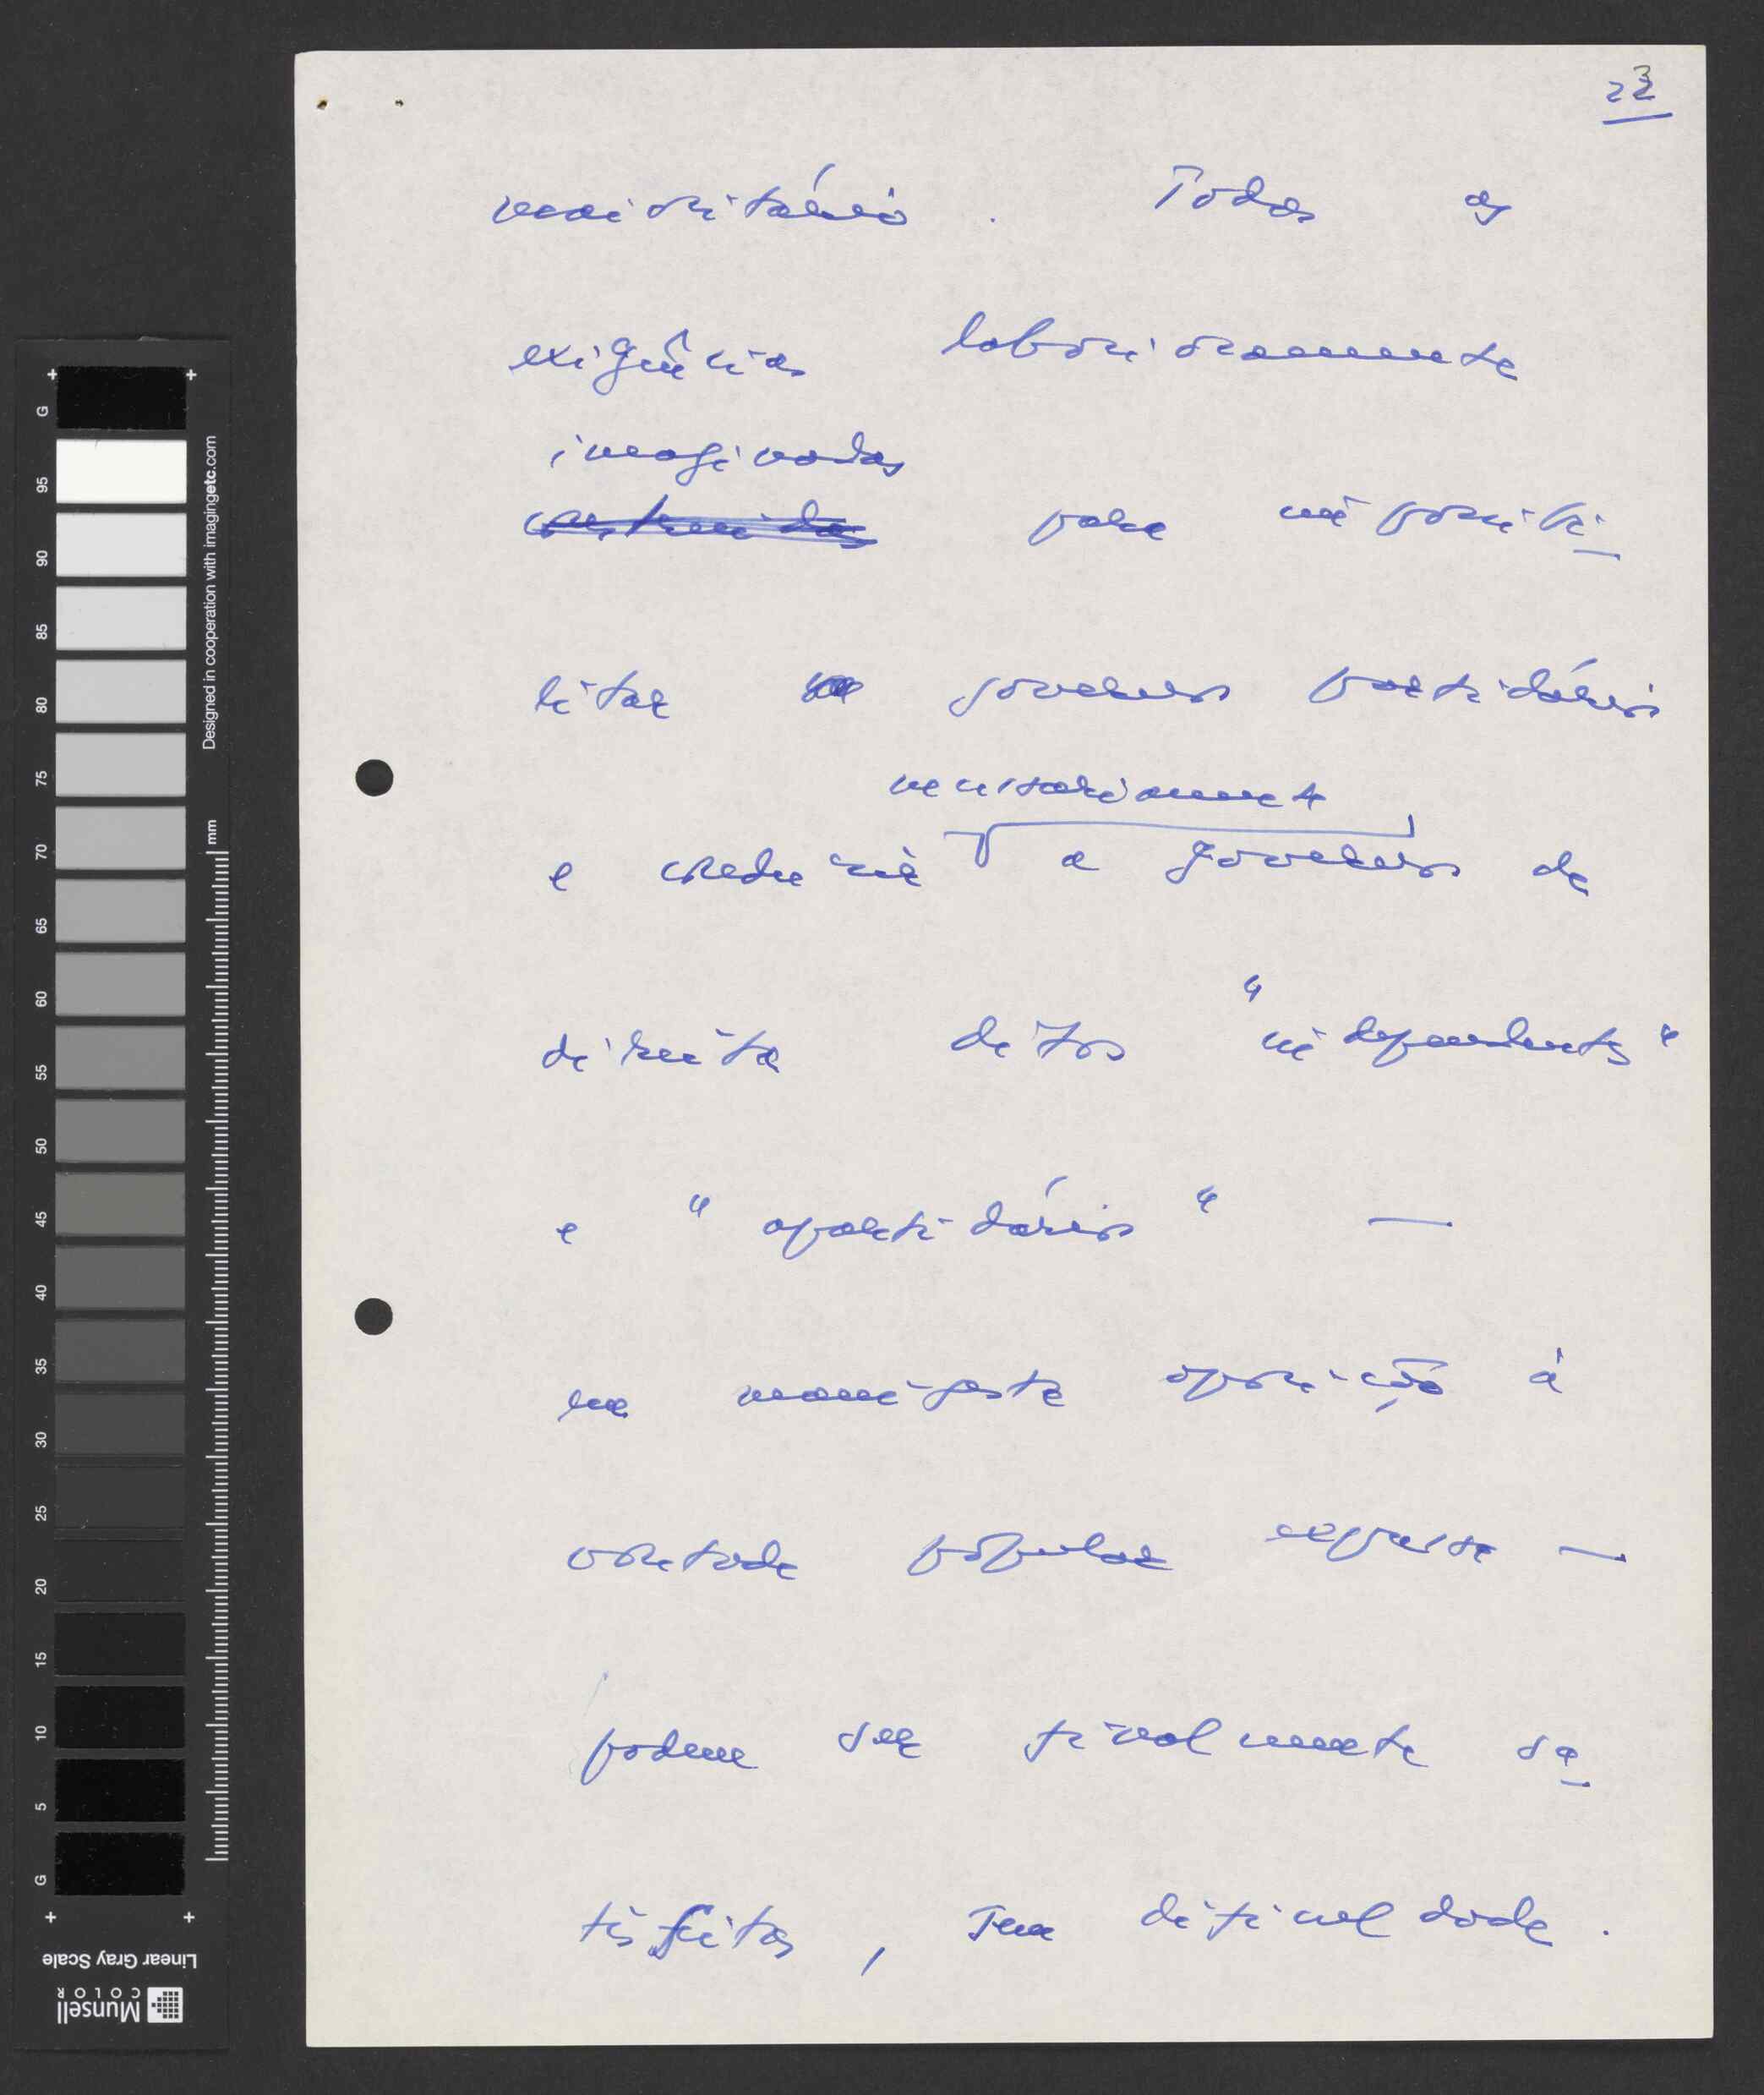 23
maioritário. Todas as
exigências laboriosamente
imaginadas
construidas para impossibi-
litar governos partidários
necessariamente
e conduzir a governos de
direita ditos "independentes"
e "apartidários" —
em manifesta oposição à
vontade popular expressa —
podem ser finalmente sa-
tisfeitas, sem dificuldade.
G
95
90
85
80
75
70
65
60
55
50
45
40
35
30
25
20
15
10
5
G
mm
Designed in cooperation with imagingetc.com
Linear Gray Scale
Munsell
COLOR